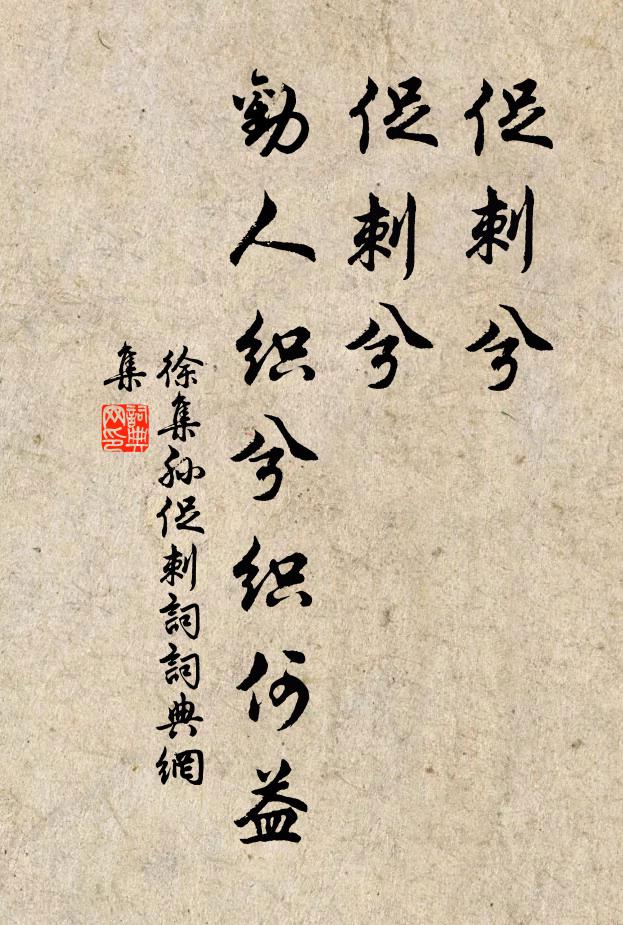 促刺兮
促刺兮
勸人织兮织何益
徐集孙促刺詞詞典網
集
詞典网印